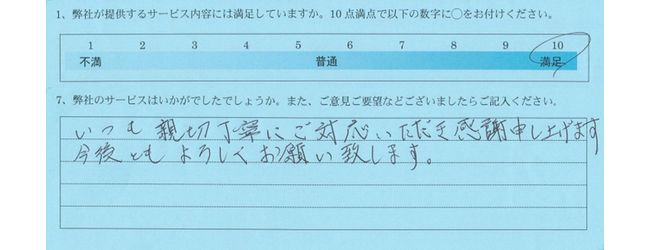 1、弊社が提供するサービス内容には満足していますか。10点満点で以下の数字に○をお付けください。
1 2 3 4 5 6 7 8 9 10
不満 普通 満足
7、弊社のサービスはいかがでしたでしょうか。また、ご意見ご要望などございましたらご記入ください。
いつも親切丁寧にご対応いただき感謝申し上げます
今後ともよろしくお願い致します。